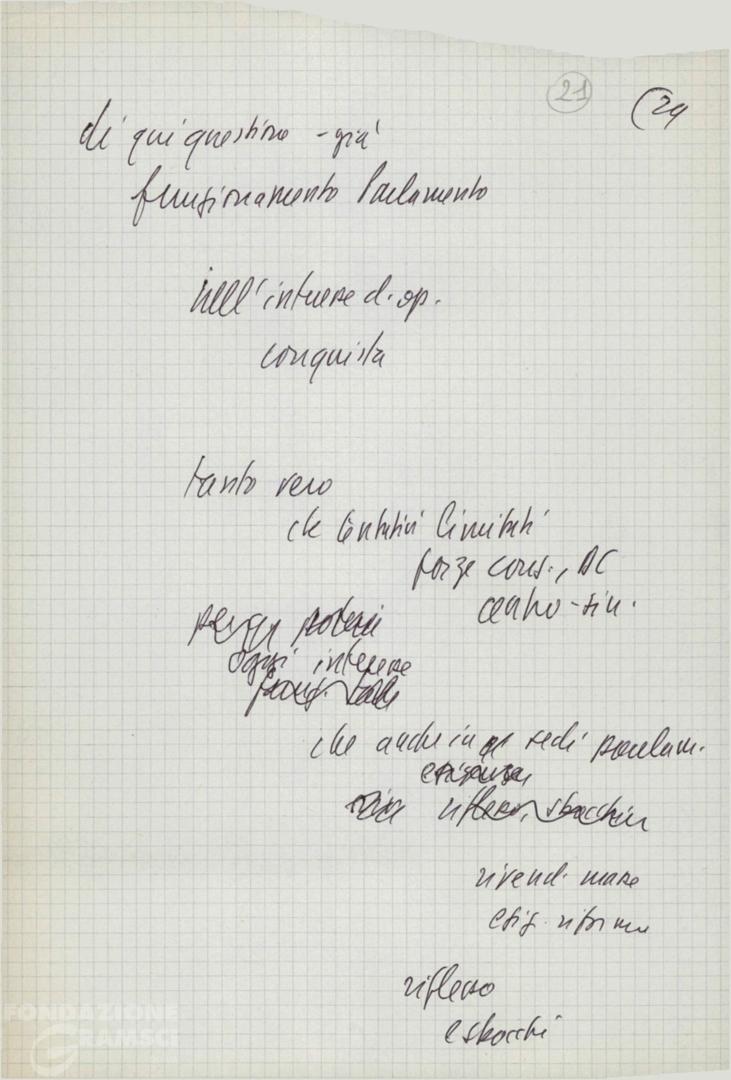 21 (24
di qui questione - già
funzionamento Parlamento
nell'interesse d. op.
conquista
tanto vero
che tentativi limitati
forze cons., DC
centro-sin.
oggi interesse
che anche in sedi parlam.
esigenza
riflesso, sbocchi
rivend. masse
esig. riforme
riflesso
e sbocchi
FONDAZIONE
GRAMSCI